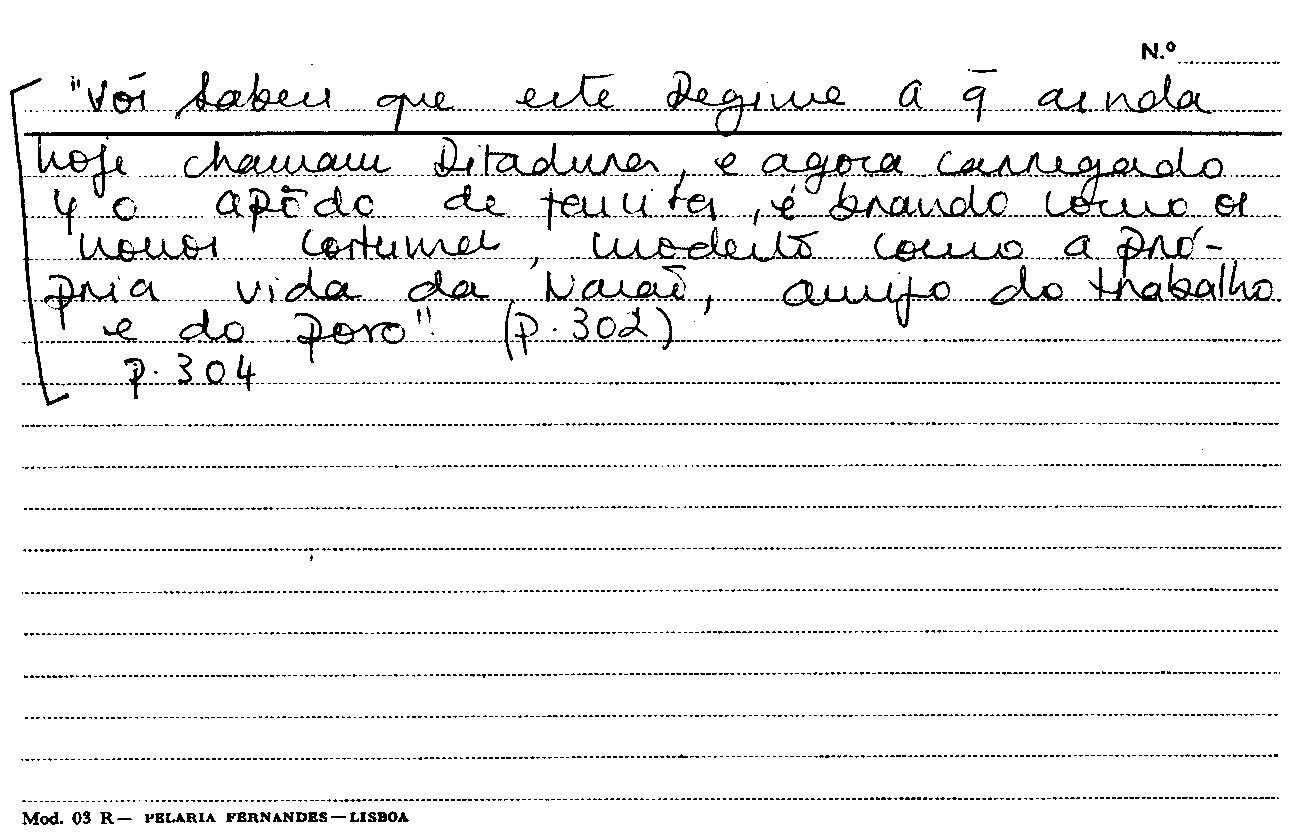 N.º
"Vós sabeis que este Regime a q̄ ainda
hoje chamam Ditadura, e agora carregado
c/ o apôdo de fascista, é brando como os
nossos costumes, modesto como a pró-
pria vida da Nação, amigo do trabalho
e do povo". (p. 302)
p. 304
Mod. 03 R — PELARIA FERNANDES — LISBOA